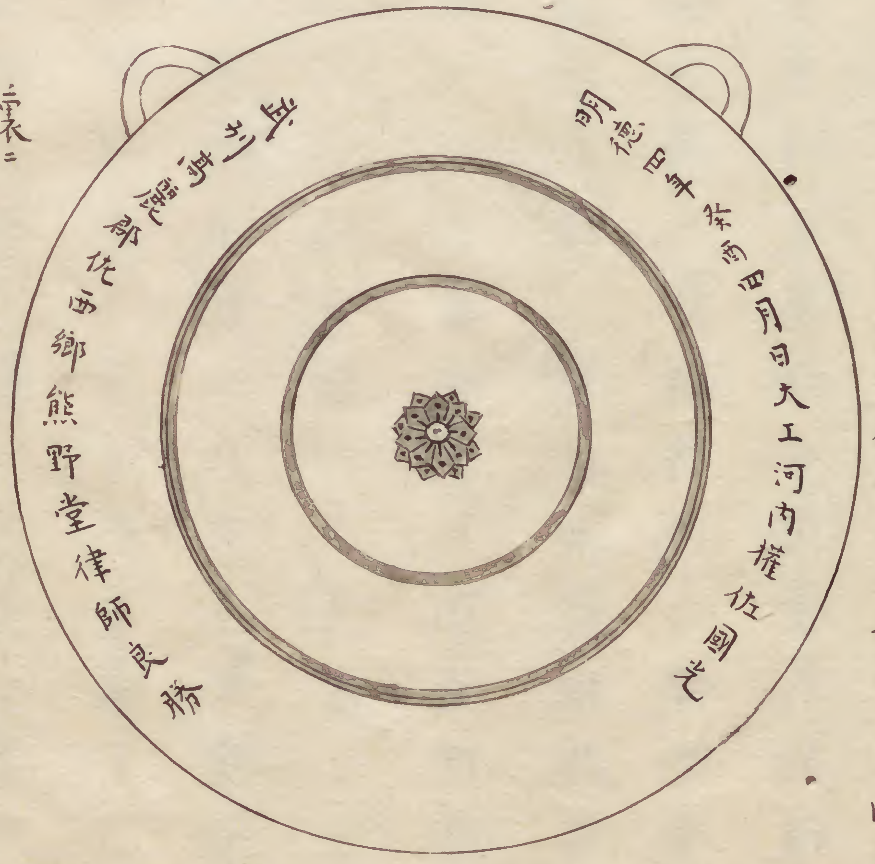 明徳四年癸酉四月日大工河内権佐國光
武州高麗郡佐西鄉熊野堂律師良勝
裏